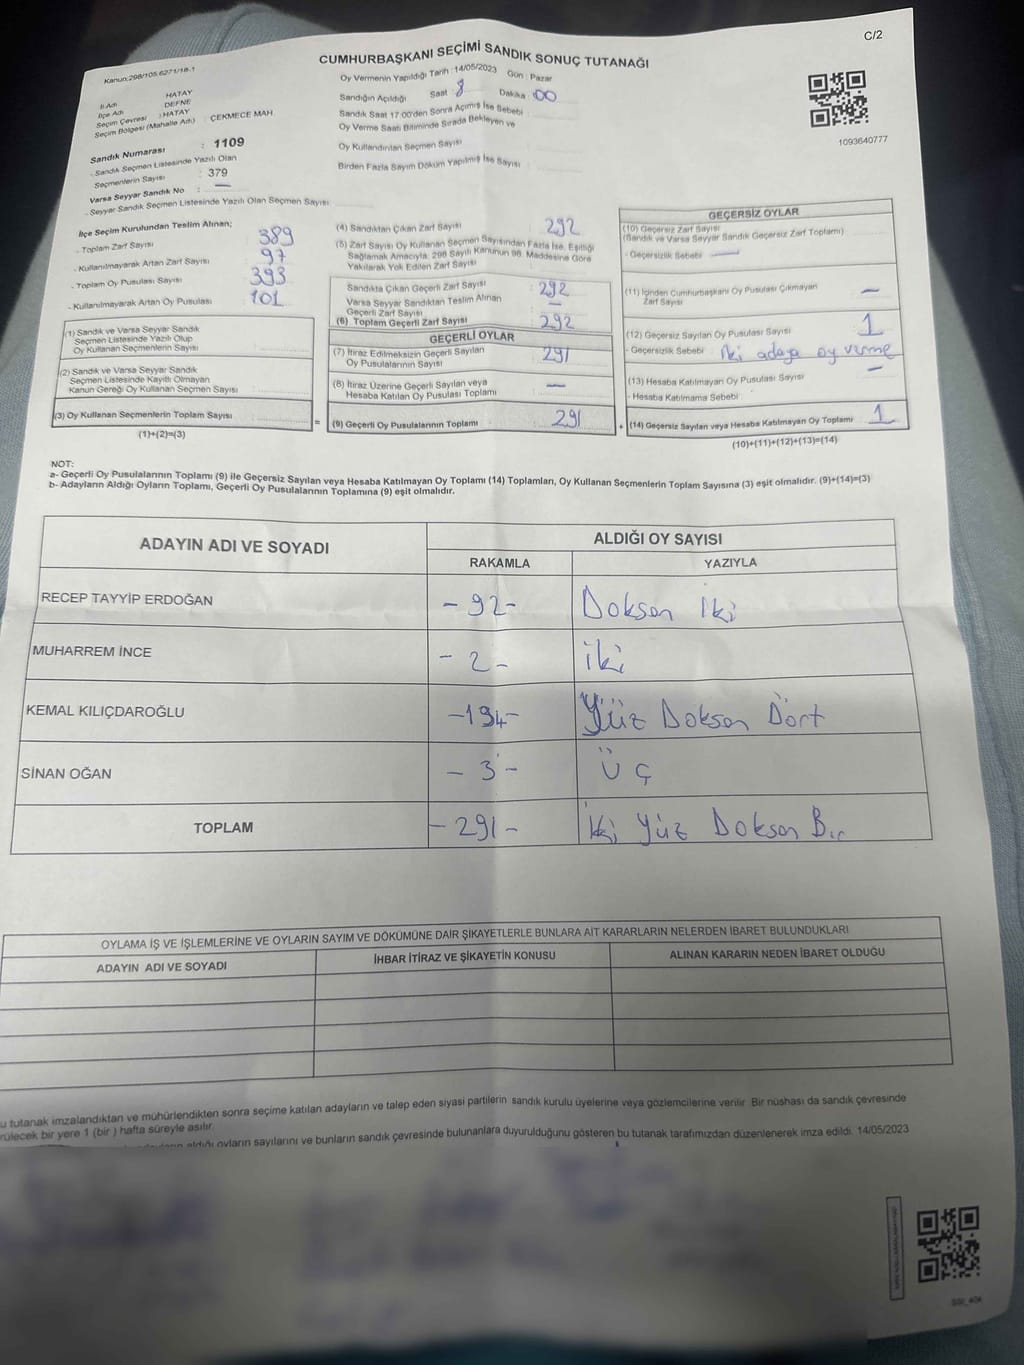 C/2
Kanun:298/105,6271/18-1
CUMHURBAŞKANI SEÇİMİ SANDIK SONUÇ TUTANAĞI
İl Adı : HATAY
İlçe Adı : DEFNE
Seçim Çevresi : HATAY
Seçim Bölgesi (Mahalle Adı) : ÇEKMECE MAH
Sandık Numarası : 1109
- Sandık Seçmen Listesinde Yazılı Olan
Seçmenlerin Sayısı : 379
Varsa Seyyar Sandık No : —
- Seyyar Sandık Seçmen Listesinde Yazılı Olan Seçmen Sayısı
Oy Vermenin Yapıldığı Tarih : 14/05/2023 Gün : Pazar
Sandığın Açıldığı Saat : 8 Dakika : 00
Sandık Saat 17:00'den Sonra Açımış İse Sebebi
Oy Verme Saati Bitiminde Sırada Bekleyen ve
Oy Kullandırılan Seçmen Sayısı
Birden Fazla Sayım Döküm Yapılmış İse Sayısı
1093640777
İlçe Seçim Kurulundan Teslim Alınan;
- Toplam Zarf Sayısı 389
- Kullanılmayarak Artan Zarf Sayısı 97
- Toplam Oy Pusulası Sayısı 393
- Kullanılmayarak Artan Oy Pusulası 101
(1) Sandık ve Varsa Seyyar Sandık
Seçmen Listesinde Yazılı Olup
Oy Kullanan Seçmenlerin Sayısı
(2) Sandık ve Varsa Seyyar Sandık
Seçmen Listesinde Kayıtlı Olmayan
Kanun Gereği Oy Kullanan Seçmen Sayısı
(3) Oy Kullanan Seçmenlerin Toplam Sayısı
(1)+(2)=(3)
(4) Sandıktan Çıkan Zarf Sayısı 292
(5) Zarf Sayısı Oy Kullanan Seçmen Sayısından Fazla İse, Eşitliği
Sağlamak Amacıyla; 298 Sayılı Kanunun 98. Maddesine Göre
Yakılarak Yok Edilen Zarf Sayısı
Sandıkta Çıkan Geçerli Zarf Sayısı : 292
Varsa Seyyar Sandıktan Teslim Alınan
Geçerli Zarf Sayısı : —
(6) Toplam Geçerli Zarf Sayısı : 292
GEÇERLİ OYLAR
(7) İtiraz Edilmeksizin Geçerli Sayılan
Oy Pusulalarının Sayısı : 291
(8) İtiraz Üzerine Geçerli Sayılan veya
Hesaba Katılan Oy Pusulası Toplamı : —
(9) Geçerli Oy Pusulalarının Toplamı : 291
=
+
GEÇERSİZ OYLAR
(10) Geçersiz Zarf Sayısı
(Sandık ve Varsa Seyyar Sandık Geçersiz Zarf Toplamı)
- Geçersizlik Sebebi : —
(11) İçinden Cumhurbaşkanı Oy Pusulası Çıkmayan
Zarf Sayısı —
(12) Geçersiz Sayılan Oy Pusulası Sayısı 1
- Geçersizlik Sebebi : İki adaya oy verme
(13) Hesaba Katılmayan Oy Pusulası Sayısı —
- Hesaba Katılmama Sebebi
(14) Geçersiz Sayılan veya Hesaba Katılmayan Oy Toplamı 1
(10)+(11)+(12)+(13)=(14)
NOT:
a- Geçerli Oy Pusulalarının Toplamı (9) ile Geçersiz Sayılan veya Hesaba Katılmayan Oy Toplamı (14) Toplamları, Oy Kullanan Seçmenlerin Toplam Sayısına (3) eşit olmalıdır. (9)+(14)=(3)
b- Adayların Aldığı Oyların Toplamı, Geçerli Oy Pusulalarının Toplamına (9) eşit olmalıdır.
ADAYIN ADI VE SOYADI
ALDIĞI OY SAYISI
RAKAMLA YAZIYLA
RECEP TAYYİP ERDOĞAN -92- Doksan İki
MUHARREM İNCE -2- İki
KEMAL KILIÇDAROĞLU -194- Yüz Doksan Dört
SİNAN OĞAN -3- Üç
TOPLAM -291- İki Yüz Doksan Bir
OYLAMA İŞ VE İŞLEMLERİNE VE OYLARIN SAYIM VE DÖKÜMÜNE DAİR ŞİKAYETLERLE BUNLARA AİT KARARLARIN NELERDEN İBARET BULUNDUKLARI
ADAYIN ADI VE SOYADI İHBAR İTİRAZ VE ŞİKAYETİN KONUSU ALINAN KARARIN NEDEN İBARET OLDUĞU
u tutanak imzalandıktan ve mühürlendikten sonra seçime katılan adayların ve talep eden siyasi partilerin sandık kurulu üyelerine veya gözlemcilerine verilir. Bir nüshası da sandık çevresinde
rülecek bir yere 1 (bir ) hafta süreyle asılır.
aldığı oyların sayılarını ve bunların sandık çevresinde bulunanlara duyurulduğunu gösteren bu tutanak tarafımızdan düzenlenerek imza edildi. 14/05/2023